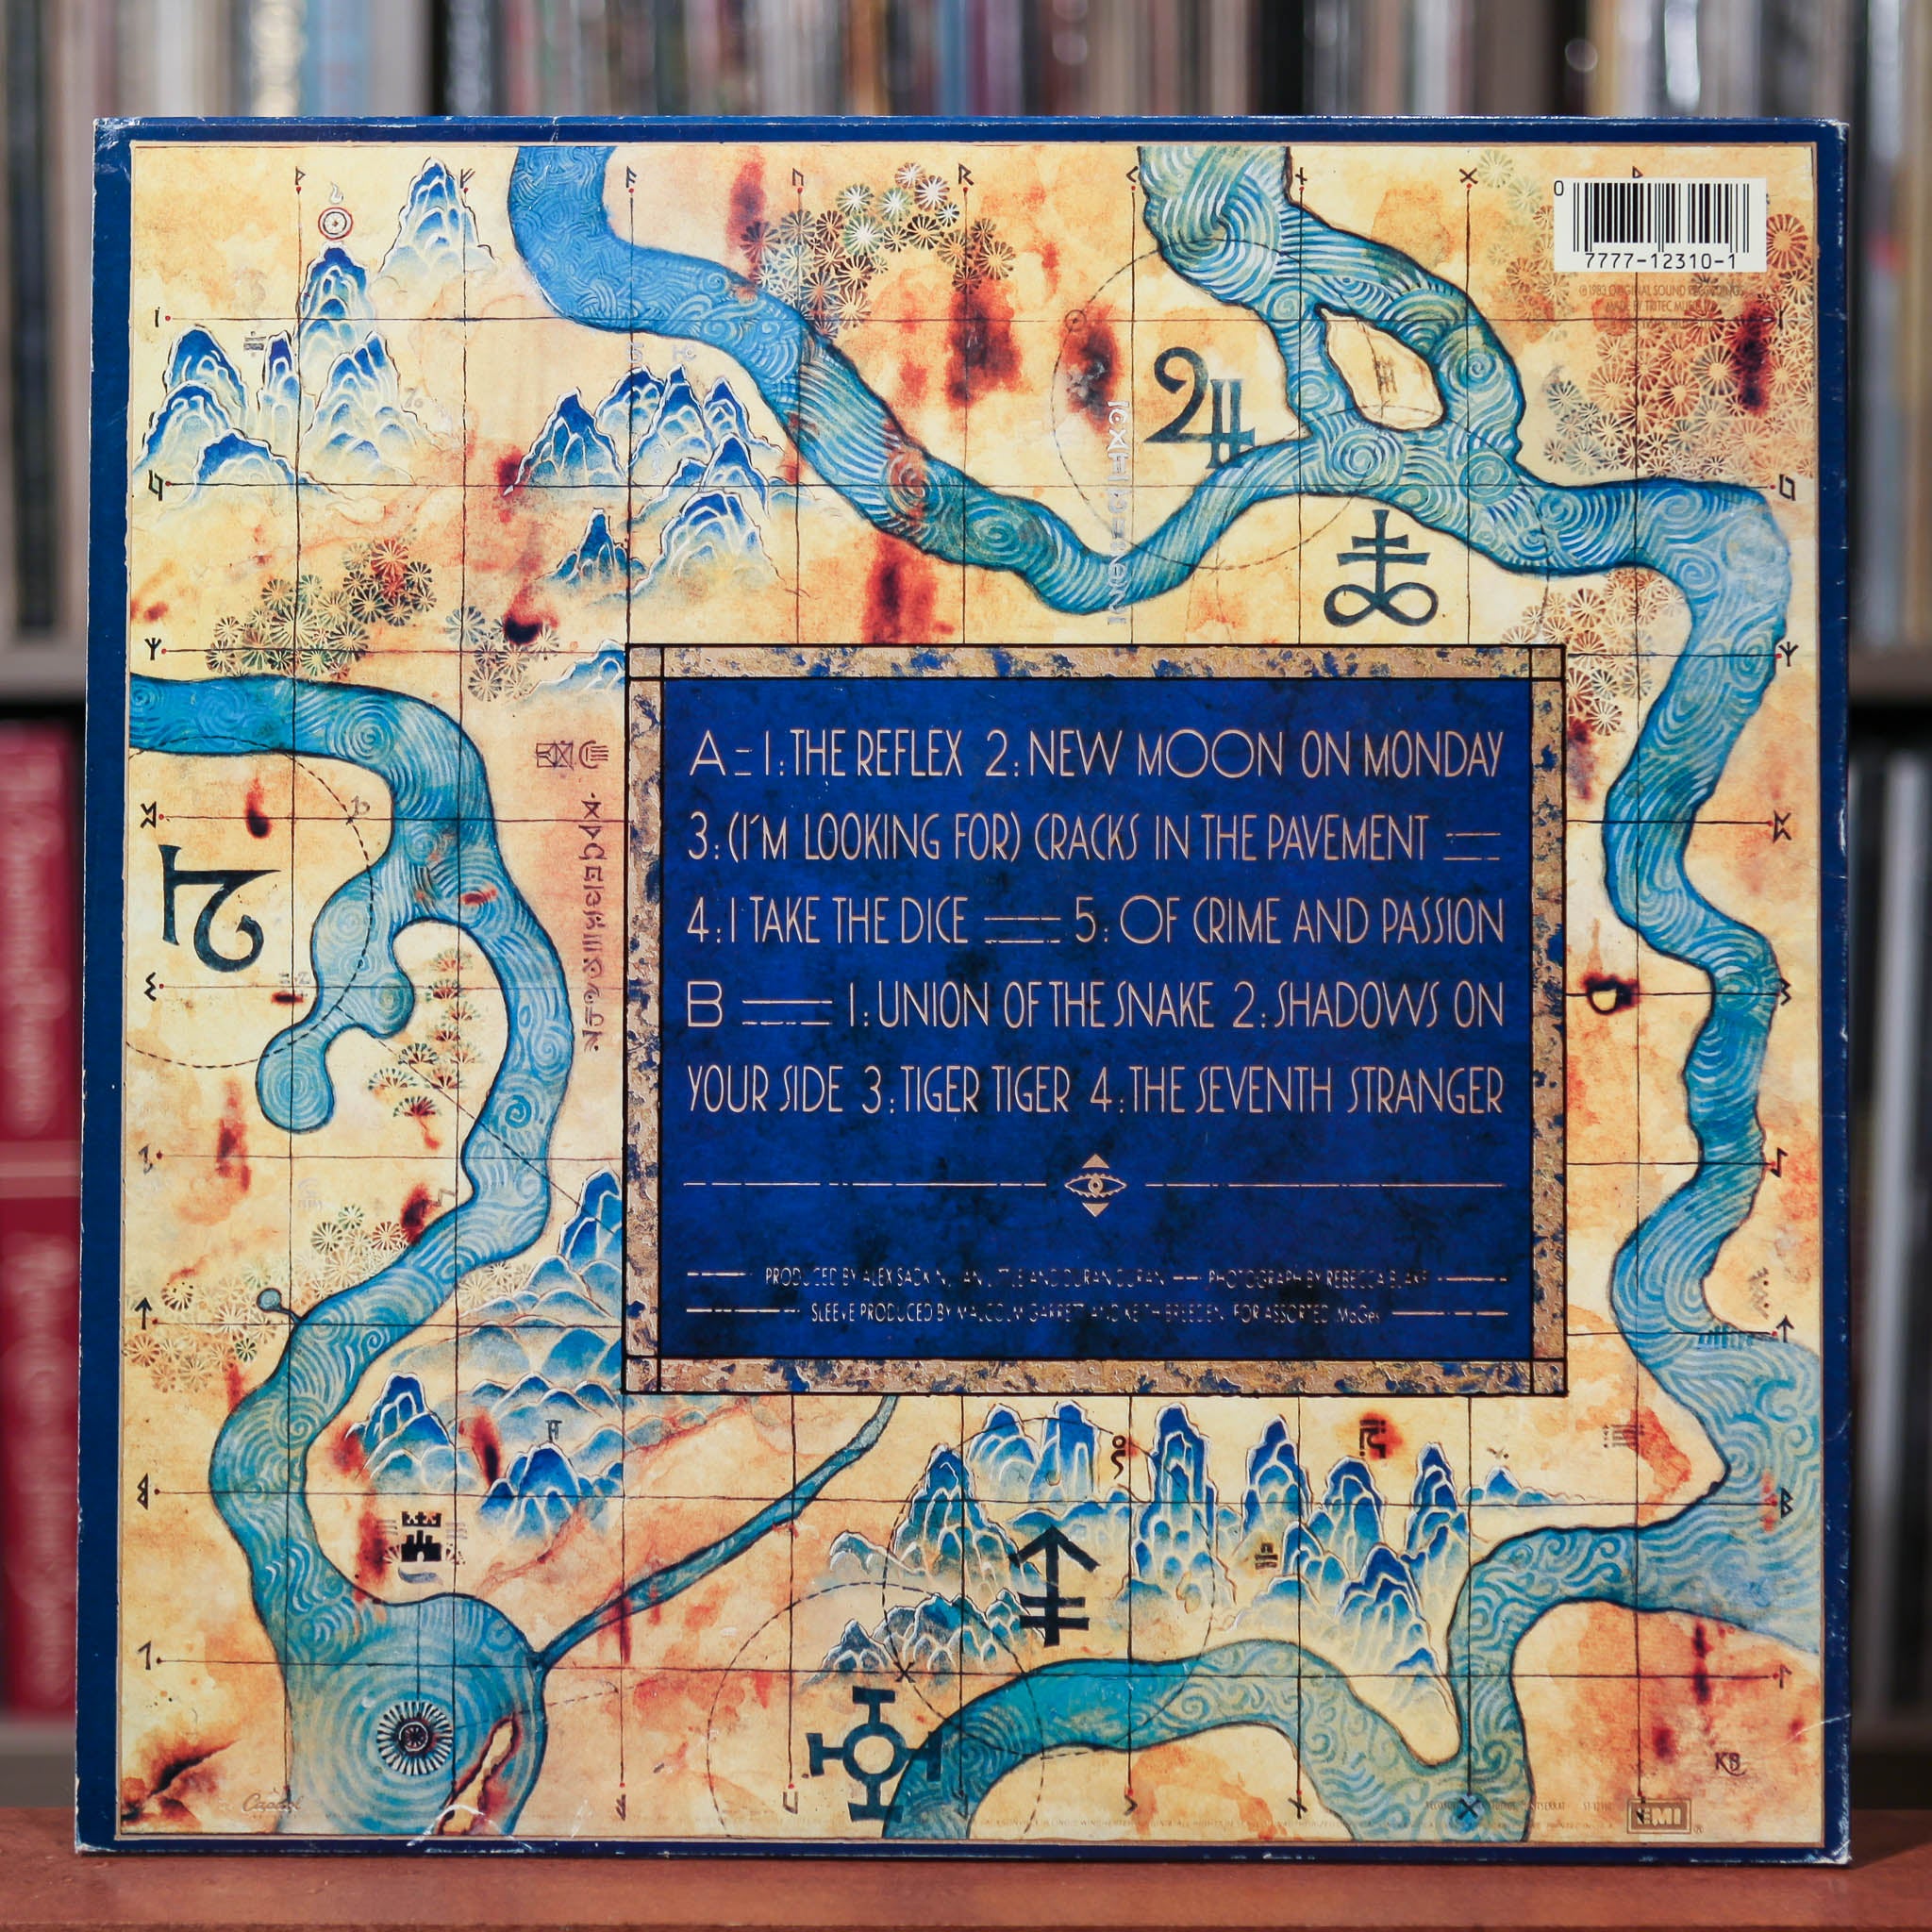 0
7777-12310-1
A = 1: THE REFLEX 2: NEW MOON ON MONDAY
3: (I'M LOOKING FOR) CRACKS IN THE PAVEMENT
4: I TAKE THE DICE 5: OF CRIME AND PASSION
B 1: UNION OF THE SNAKE 2: SHADOWS ON
YOUR SIDE 3: TIGER TIGER 4: THE SEVENTH STRANGER
PRODUCED BY ALEX SADKIN, IAN LITTLE AND DURAN DURAN PHOTOGRAPH BY REBECCA BLAKE
SLEEVE PRODUCED BY MALCOLM GARRETT AND KEITH BREEDEN, FOR ASSORTED iMaGes
KB
Capitol
EMI ®